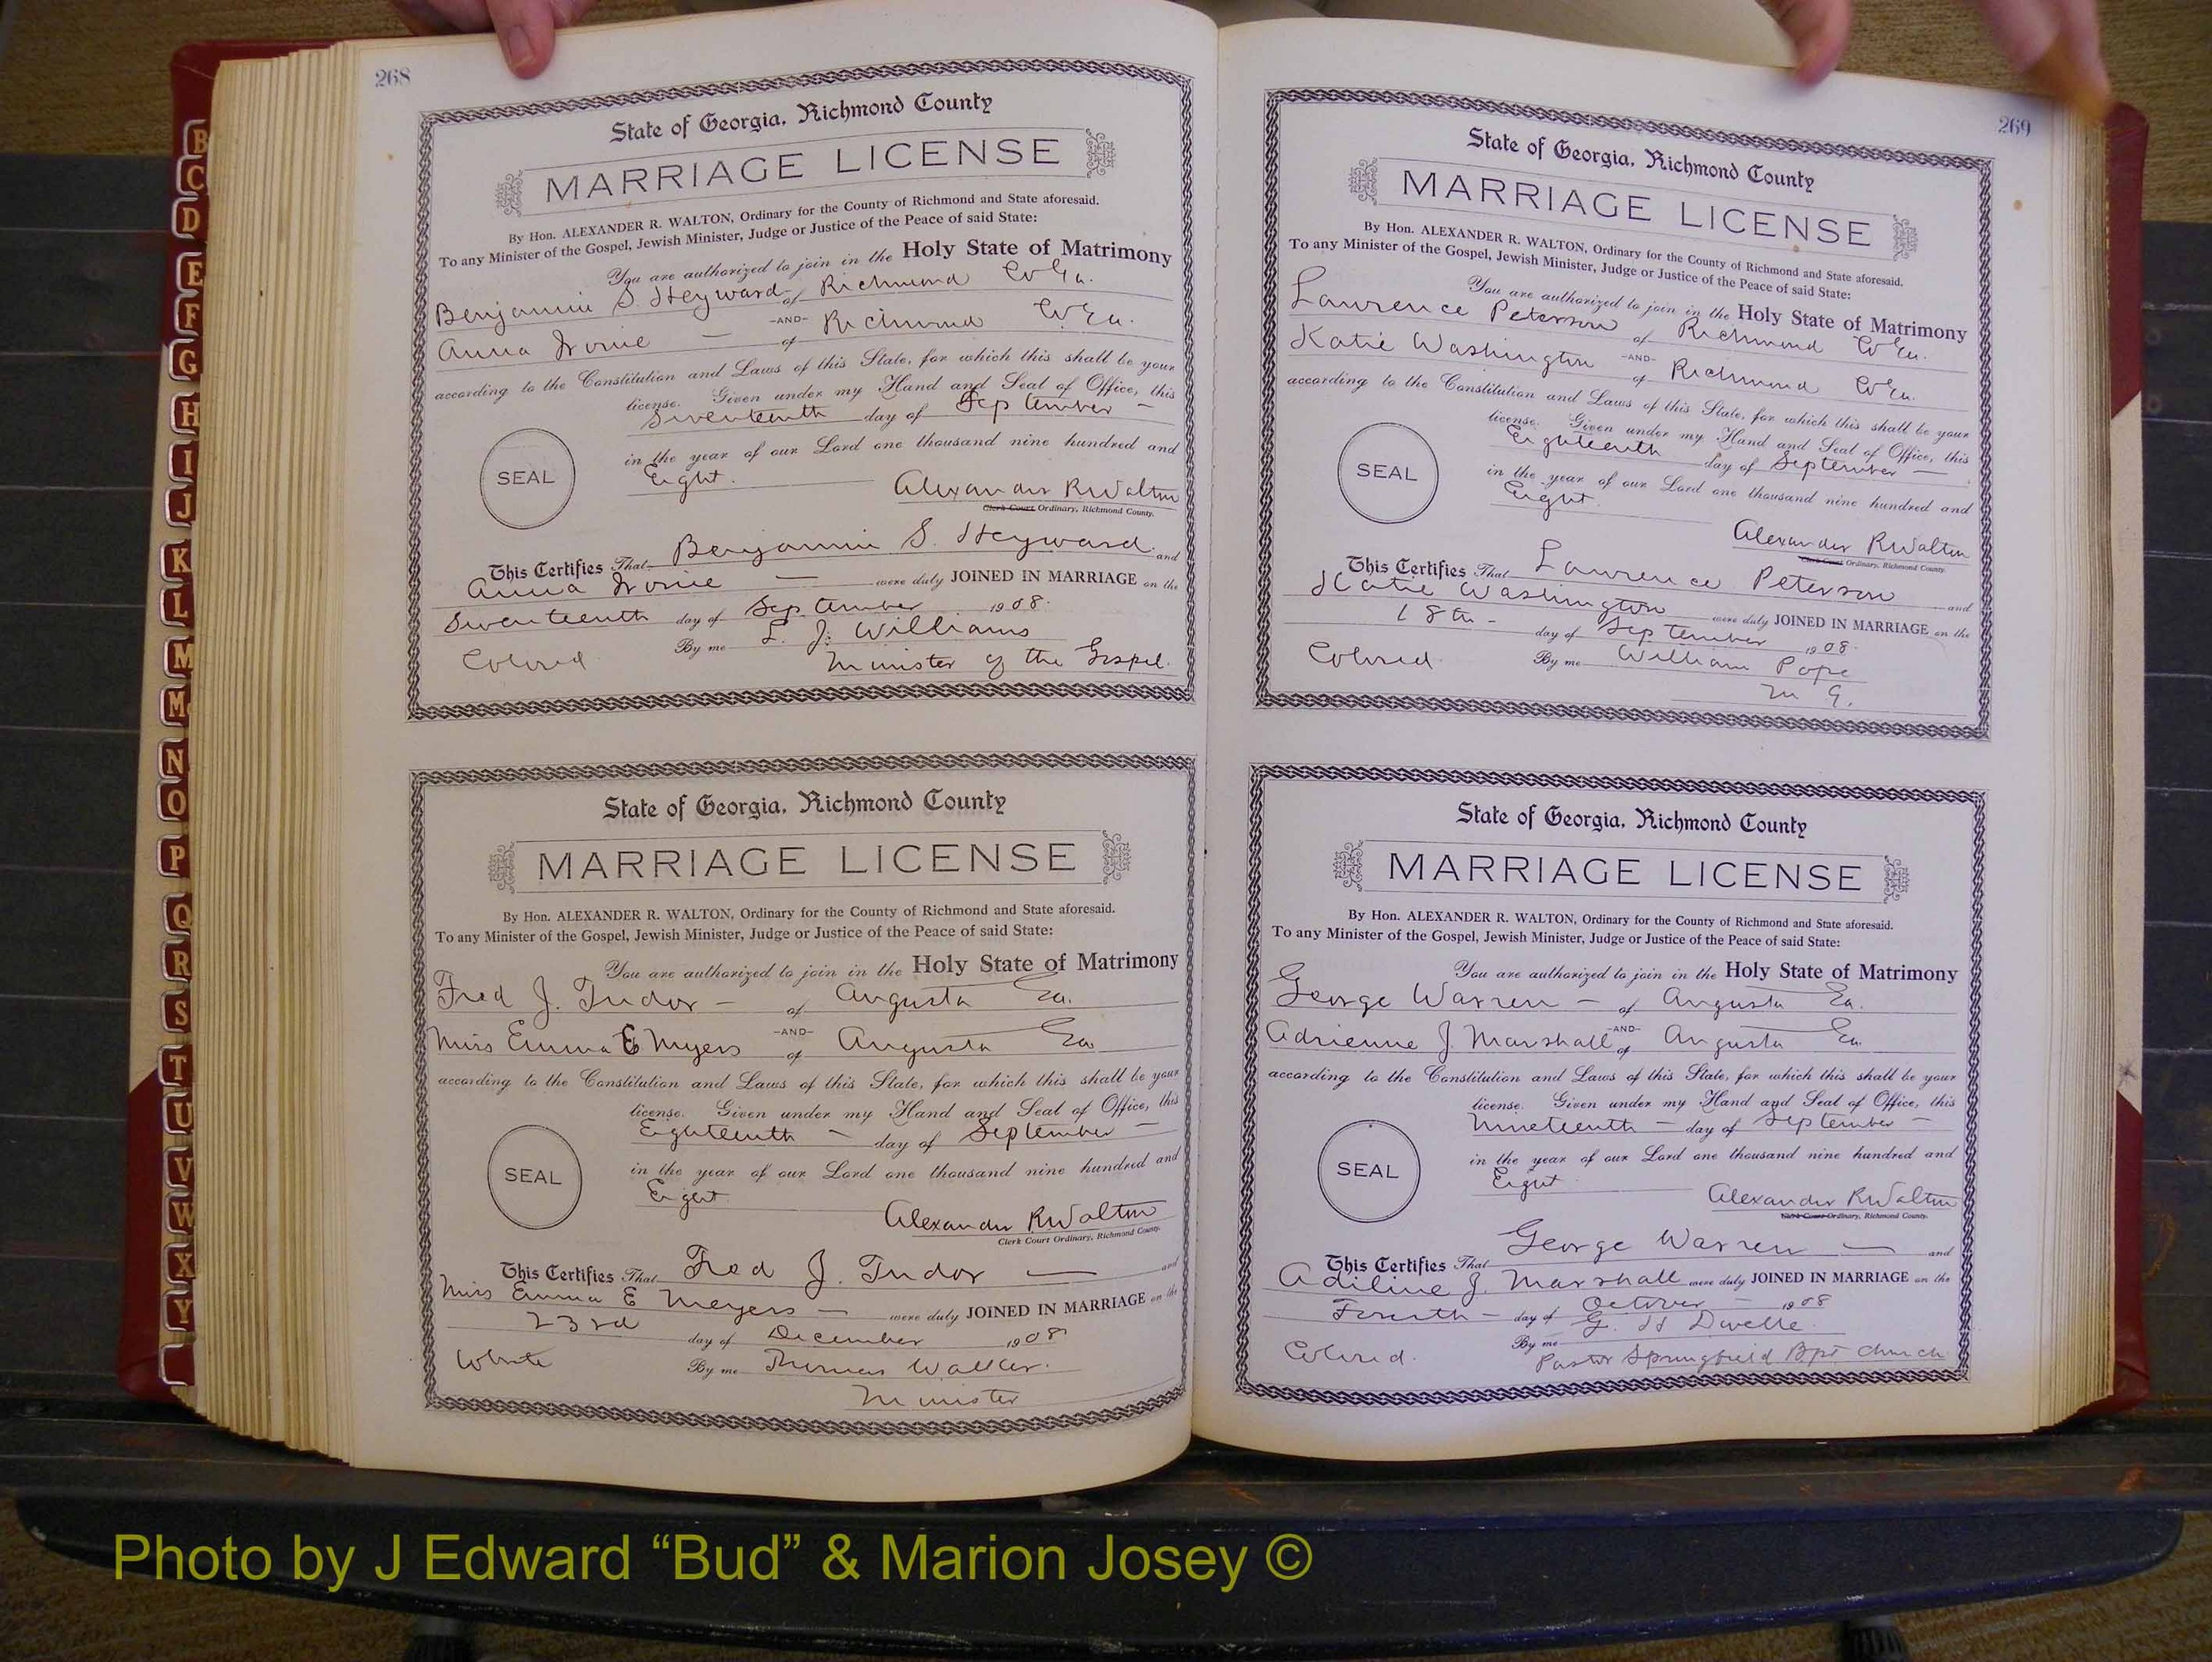 268
State of Georgia, Richmond County
MARRIAGE LICENSE
By Hon. ALEXANDER R. WALTON, Ordinary for the County of Richmond and State aforesaid.
To any Minister of the Gospel, Jewish Minister, Judge or Justice of the Peace of said State:
You are authorized to join in the Holy State of Matrimony
Benjamin S. Heyward of Richmond Co Ga.
-AND-
Anna of Richmond Co Ga.
according to the Constitution and Laws of this State, for which this shall be your
license. Given under my Hand and Seal of Office, this
Seventeenth day of September -
in the year of our Lord one thousand nine hundred and
Eight.
SEAL
Alexander R Walton
Clerk Court Ordinary, Richmond County.
This Certifies That Benjamin S. Heyward and
Anna - were duly JOINED IN MARRIAGE on the
Seventeenth day of September 1908.
By me L. J. Williams
Colored Minister of the Gospel.
State of Georgia, Richmond County
MARRIAGE LICENSE
By Hon. ALEXANDER R. WALTON, Ordinary for the County of Richmond and State aforesaid.
To any Minister of the Gospel, Jewish Minister, Judge or Justice of the Peace of said State:
You are authorized to join in the Holy State of Matrimony
Fred J. Tudor - of Augusta Ga.
-AND-
Miss Emma E Myers of Augusta Ga
according to the Constitution and Laws of this State, for which this shall be your
license. Given under my Hand and Seal of Office, this
Eighteenth - day of September -
in the year of our Lord one thousand nine hundred and
Eight
SEAL
Alexander R Walton
Clerk Court Ordinary, Richmond County.
This Certifies That Fred J. Tudor - and
Miss Emma E Meyers - were duly JOINED IN MARRIAGE on the
23rd day of December 1908
White By me Thomas Walker.
Minister
269
State of Georgia, Richmond County
MARRIAGE LICENSE
By Hon. ALEXANDER R. WALTON, Ordinary for the County of Richmond and State aforesaid.
To any Minister of the Gospel, Jewish Minister, Judge or Justice of the Peace of said State:
You are authorized to join in the Holy State of Matrimony
Lawrence Peterson of Richmond Co Ga.
-AND-
Katie Washington of Richmond Co Ga.
according to the Constitution and Laws of this State, for which this shall be your
license. Given under my Hand and Seal of Office, this
Eighteenth day of September -
in the year of our Lord one thousand nine hundred and
Eight
SEAL
Alexander R Walton
Clerk Court Ordinary, Richmond County.
This Certifies That Lawrence Peterson and
Katie Washington were duly JOINED IN MARRIAGE on the
18th - day of September 1908.
Colored By me William Pope
M G.
State of Georgia, Richmond County
MARRIAGE LICENSE
By Hon. ALEXANDER R. WALTON, Ordinary for the County of Richmond and State aforesaid.
To any Minister of the Gospel, Jewish Minister, Judge or Justice of the Peace of said State:
You are authorized to join in the Holy State of Matrimony
George Warren - of Augusta Ga.
-AND-
Adrienne J. Marshall of Augusta Ga.
according to the Constitution and Laws of this State, for which this shall be your
license. Given under my Hand and Seal of Office, this
Nineteenth - day of September -
in the year of our Lord one thousand nine hundred and
Eight
SEAL
Alexander R Walton
Clerk Court Ordinary, Richmond County.
This Certifies That George Warren - and
Adiline J. Marshall were duly JOINED IN MARRIAGE on the
Fourth - day of October - 1908
By me G. H Dwelle.
Colored. Pastor Springfield Bpt Church
B
C
D
E
F
G
H
I
J
K
L
M
M
N
O
P
Q
R
S
T
U
V
W
X
Y
Photo by J Edward “Bud” & Marion Josey ©